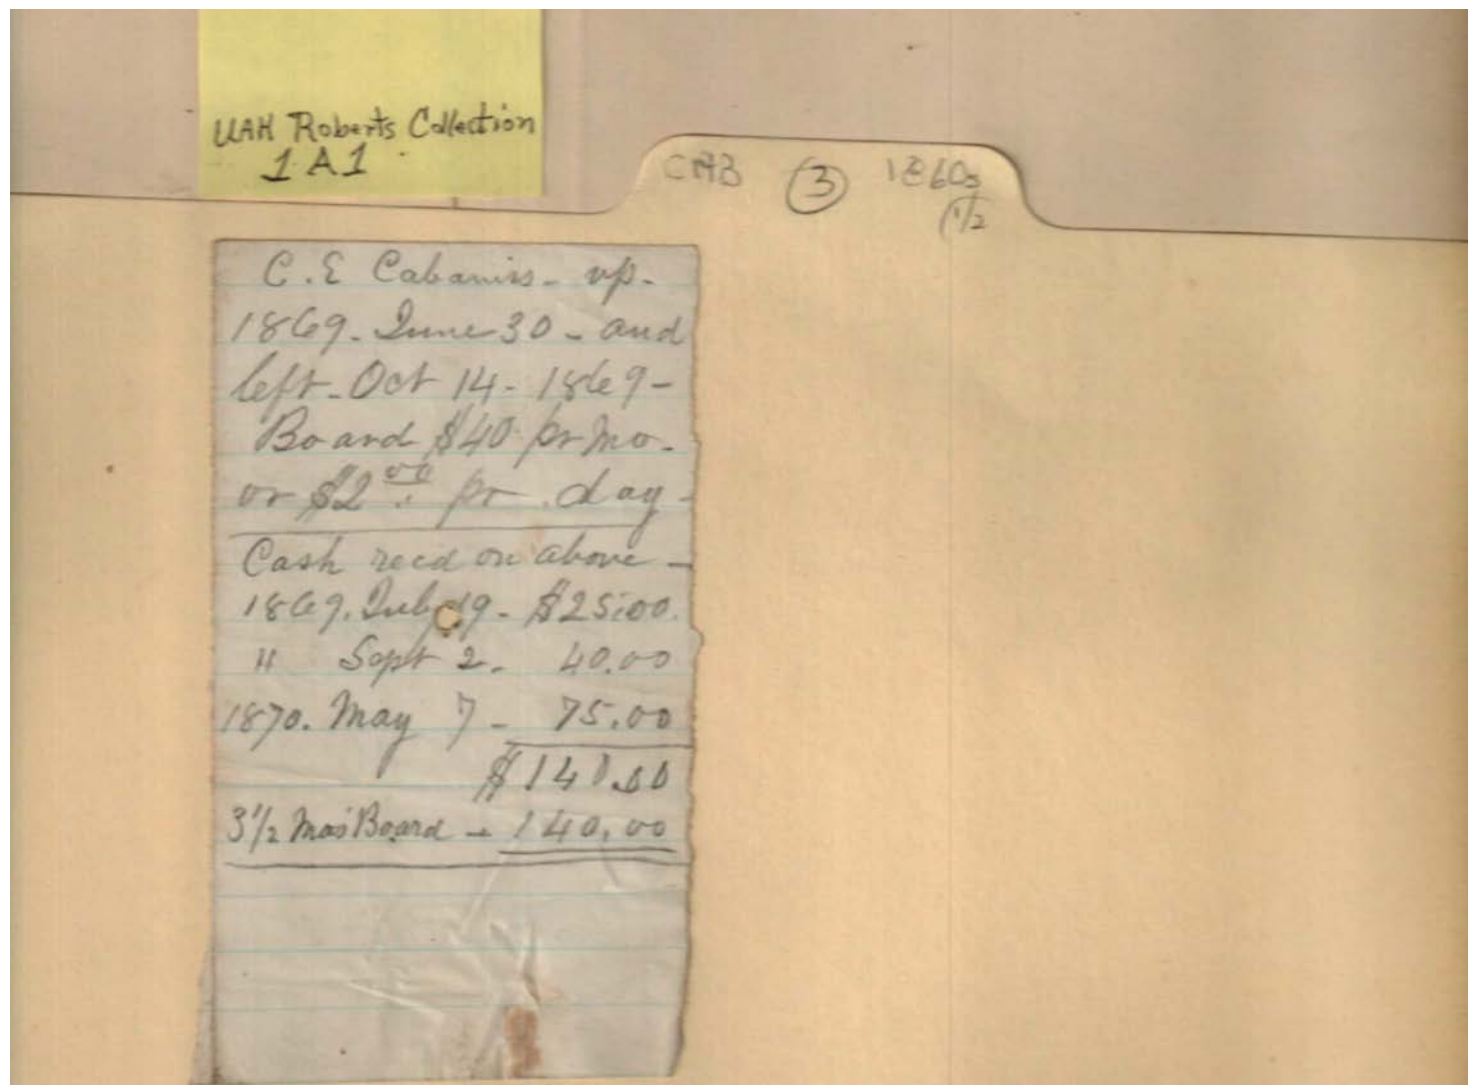 UAH Roberts Collection
1 A 1
CAB (3) 1860s
(1/2
C. E Cabaniss - up -
1869. June 30 - and
left - Oct 14 - 1869 -
Board $40 pr mo -
or $2 00 pr. day -
Cash recd on above -
1869. July 19 - $25.00.
" Sept 2 - 40.00
1870. May 7 - 75.00
$140.00
3 1/2 Mos' Board - 140.00